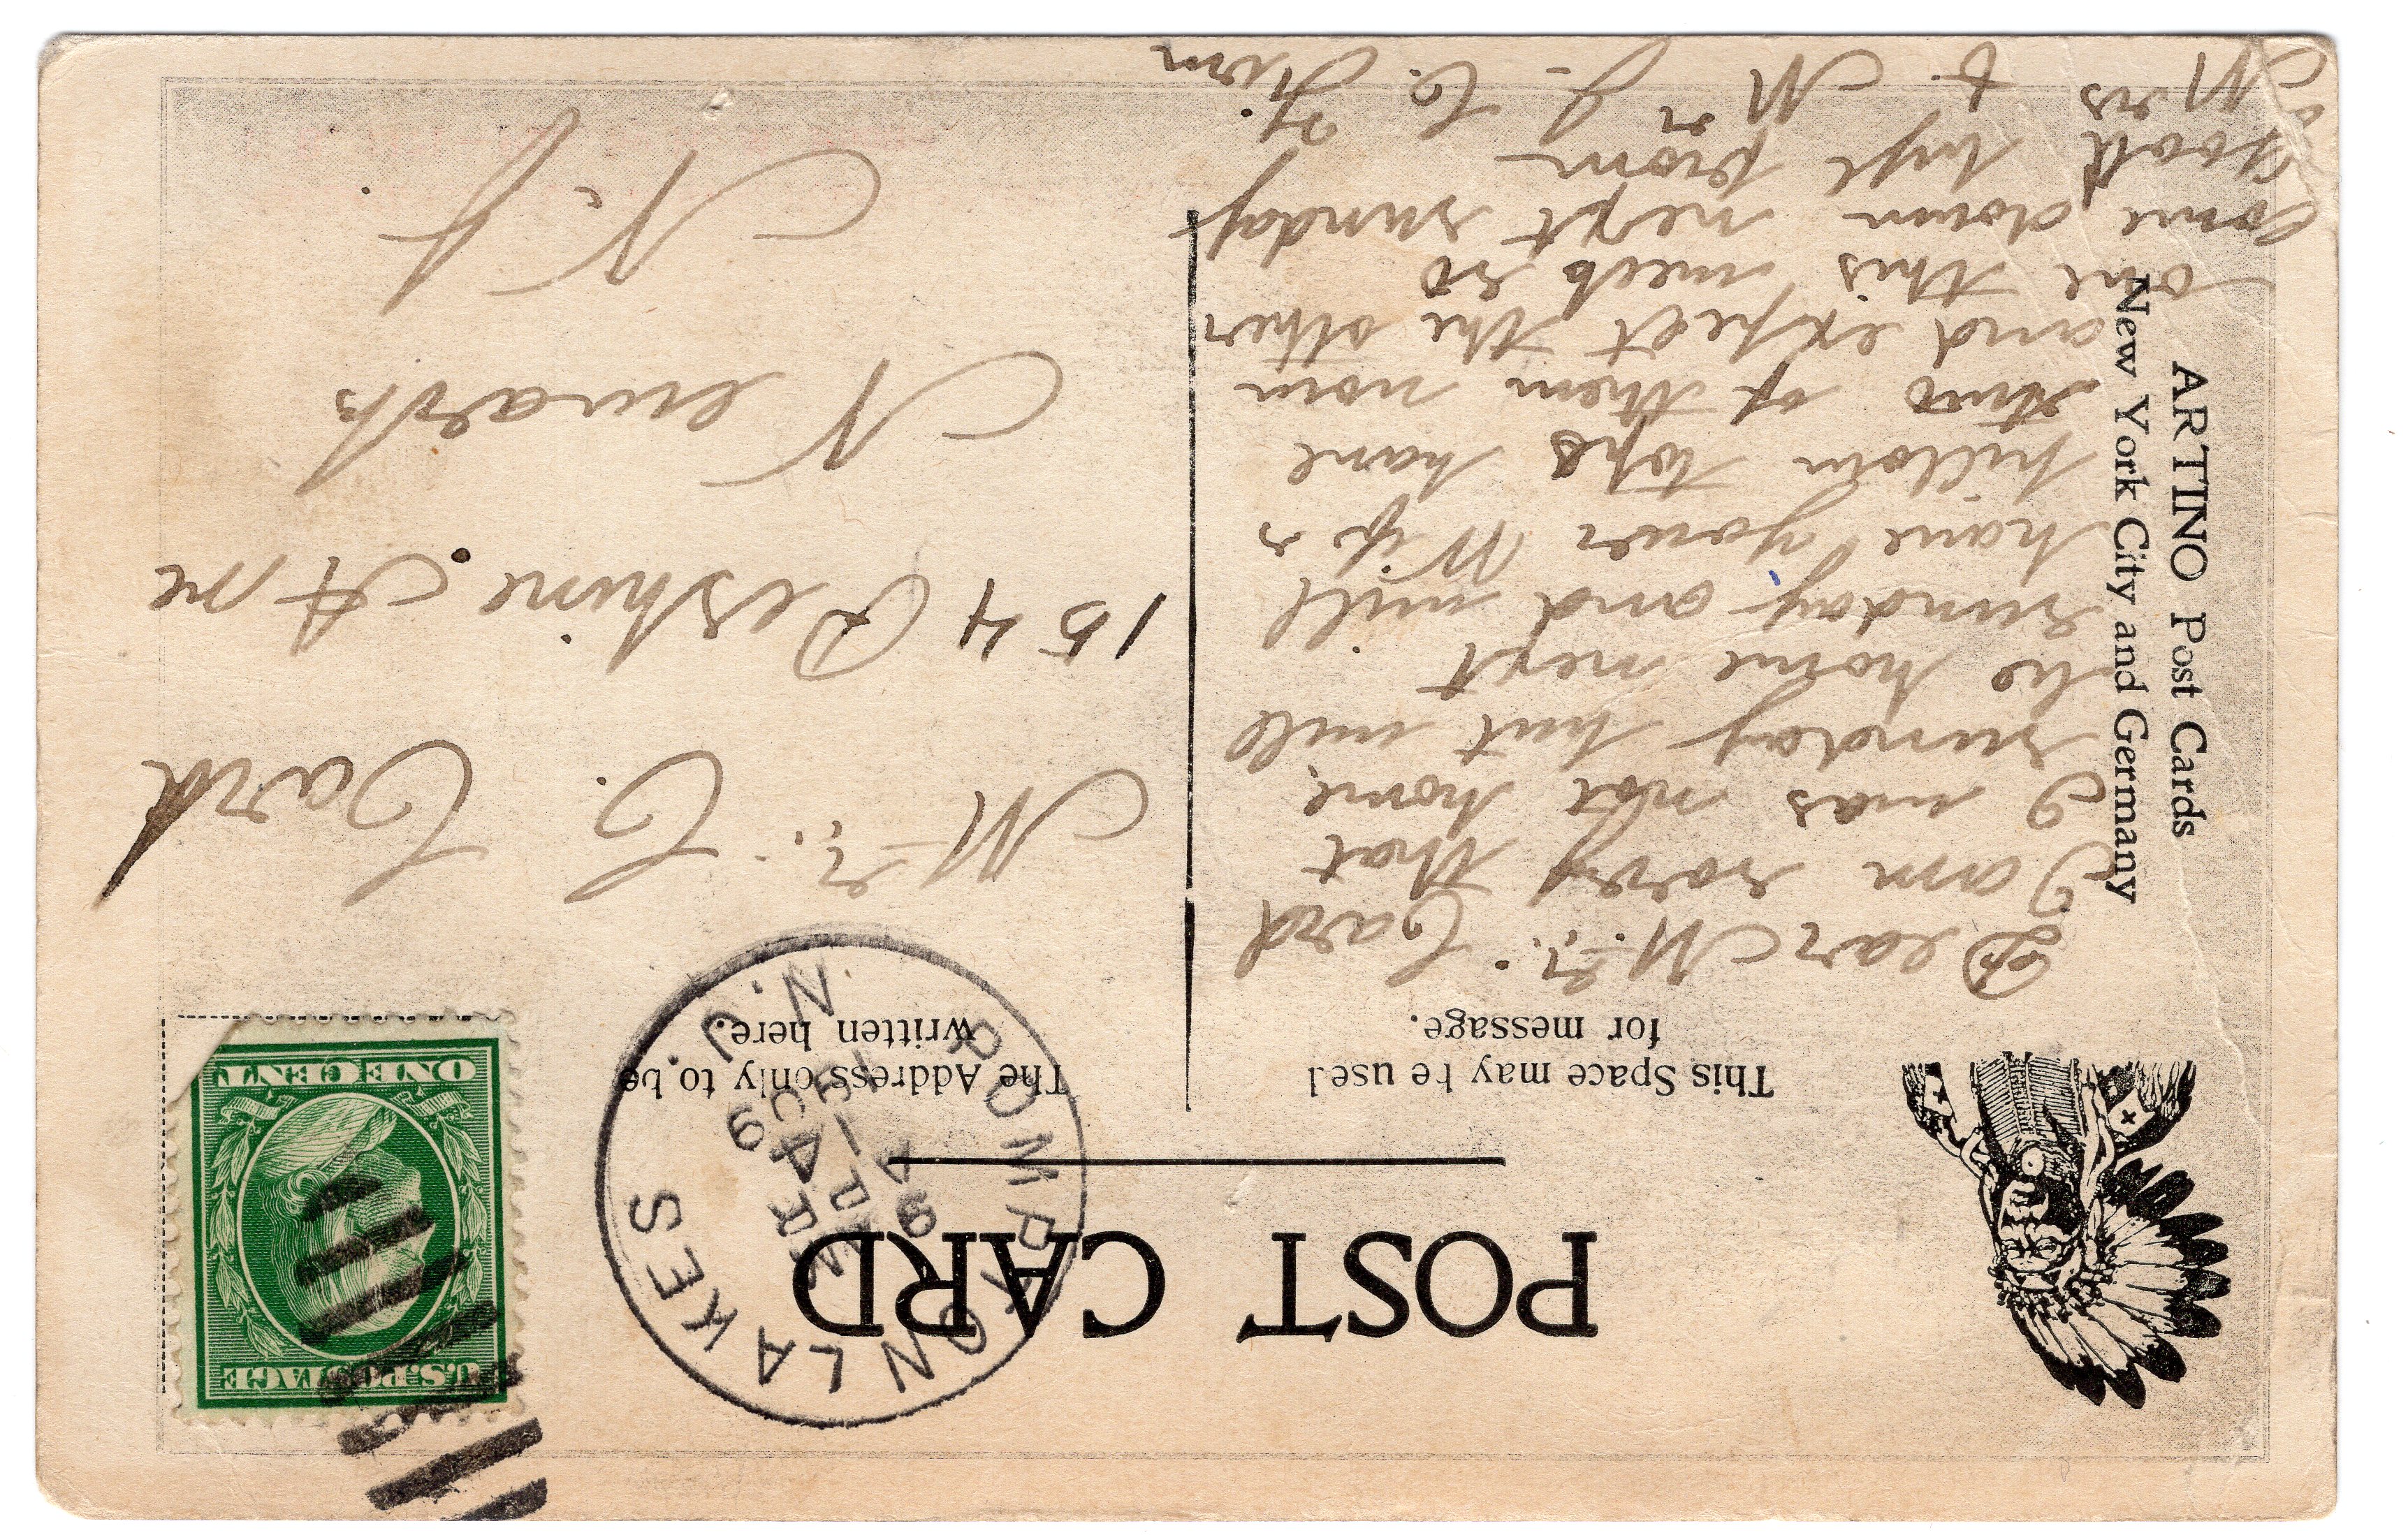 POST CARD
This Space may be used
for message.
The Address only to be
written here.
ARTINO Post Cards
New York City and Germany
POMPTON LAKES
N. J.
MAR
9
U.S. POSTAGE
ONE CENT
Dear Mr. Card
I am sorry that
I was not home
sunday but will
be home next
sunday and will
have your
pillow tops have
two of them now
and expect the other
one this week so
come down next sunday
Good bye from
Mr
Mr. C. Card
154 Peshine Ave
Newark
N.J.